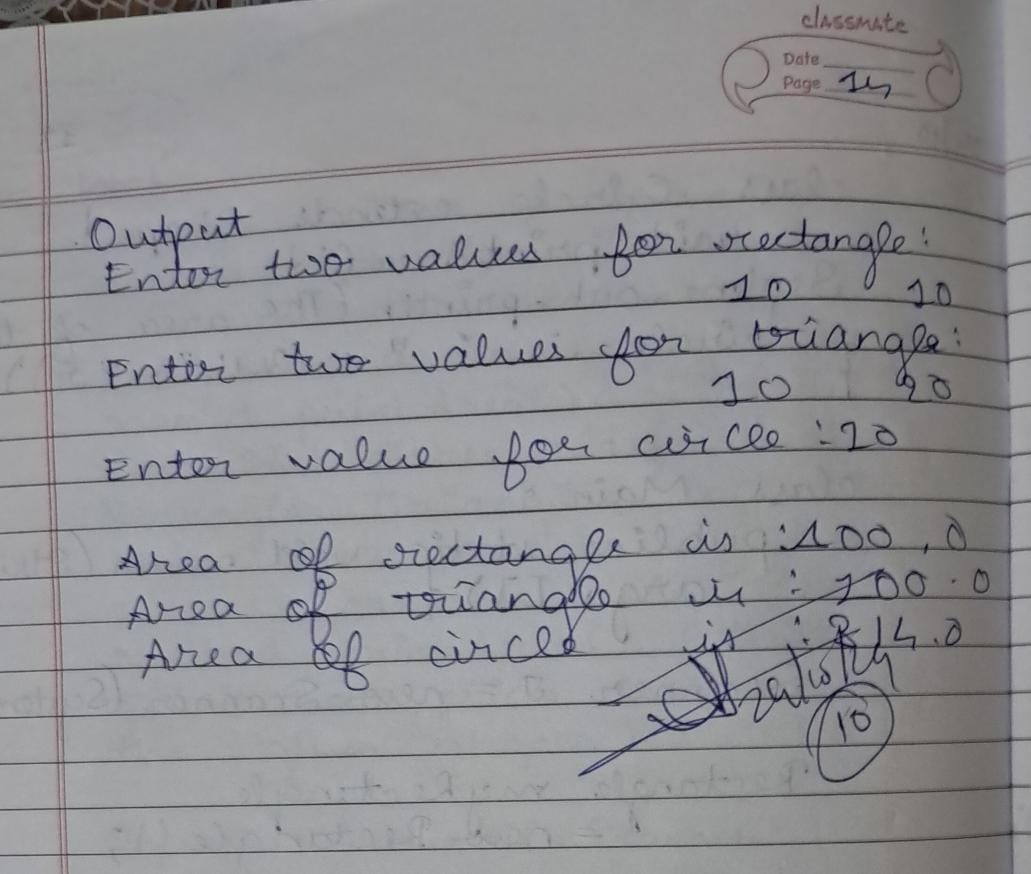 classmate
Date
Page 14
Output
Enter two values for rectangle:
10 10
Enter two values for triangle:
10 20
Enter value for circle :10
Area of rectangle is :100.0
Area of triangle is : 100.0
Area of circle is : 314.0
10